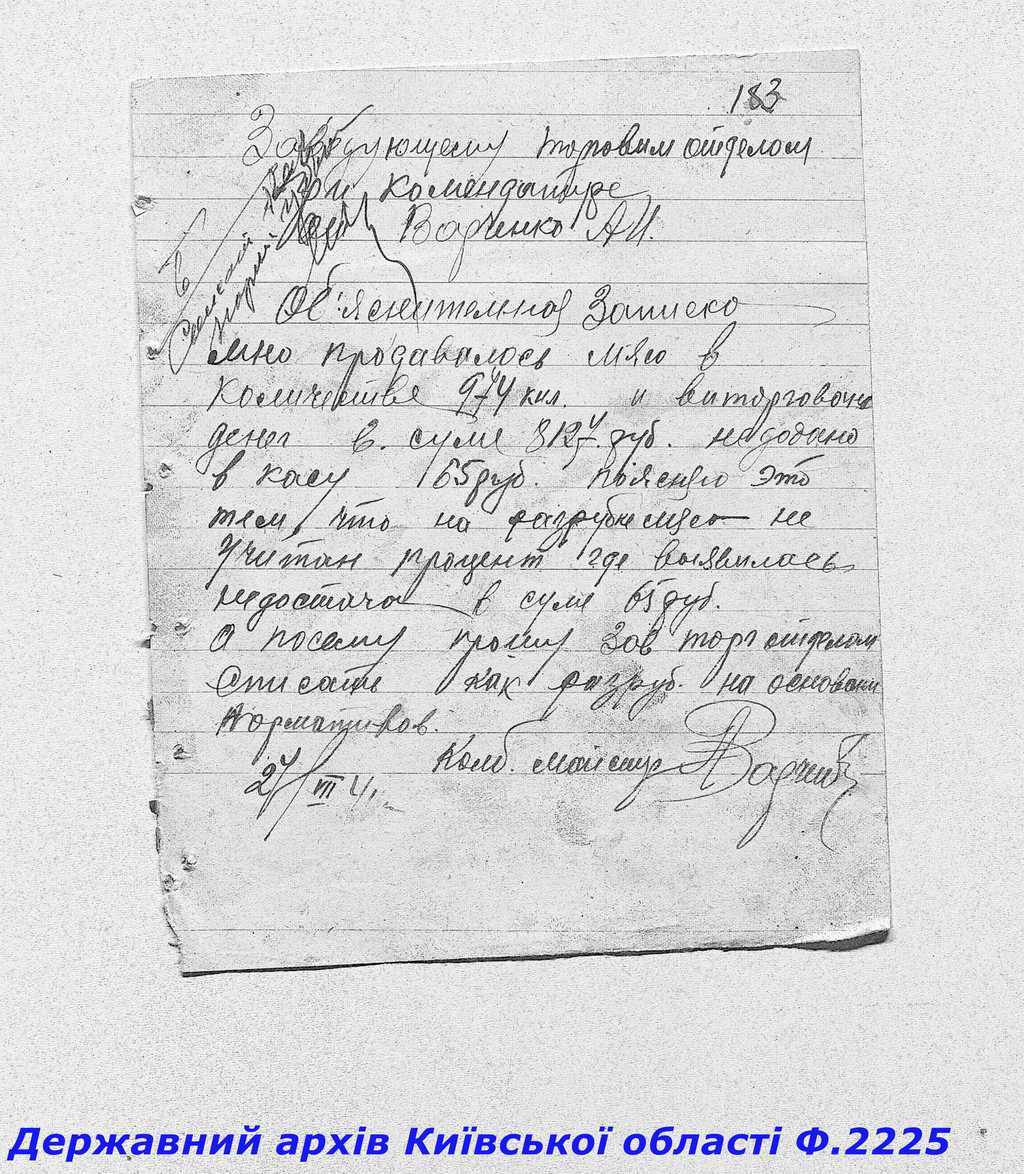 183
Заведующему торговим отделом
при комендатуре
Варченко А.И.
Об'яснительная Записка
мно продавалось мясо в
количистве 974 кил. и виторговано
денег в. суме 8127 руб. недодано
в касу 65 руб. поясняю это
тем, что на разрубке мясо не
учитан процент где выявилась
недостача в суме 65 руб.
А посему прошу Зав торг отделом
Списать как разруб. на основани
Нормативов.
Колб. майстир Варченко
24/III 4
Державний архів Київської області Ф.2225